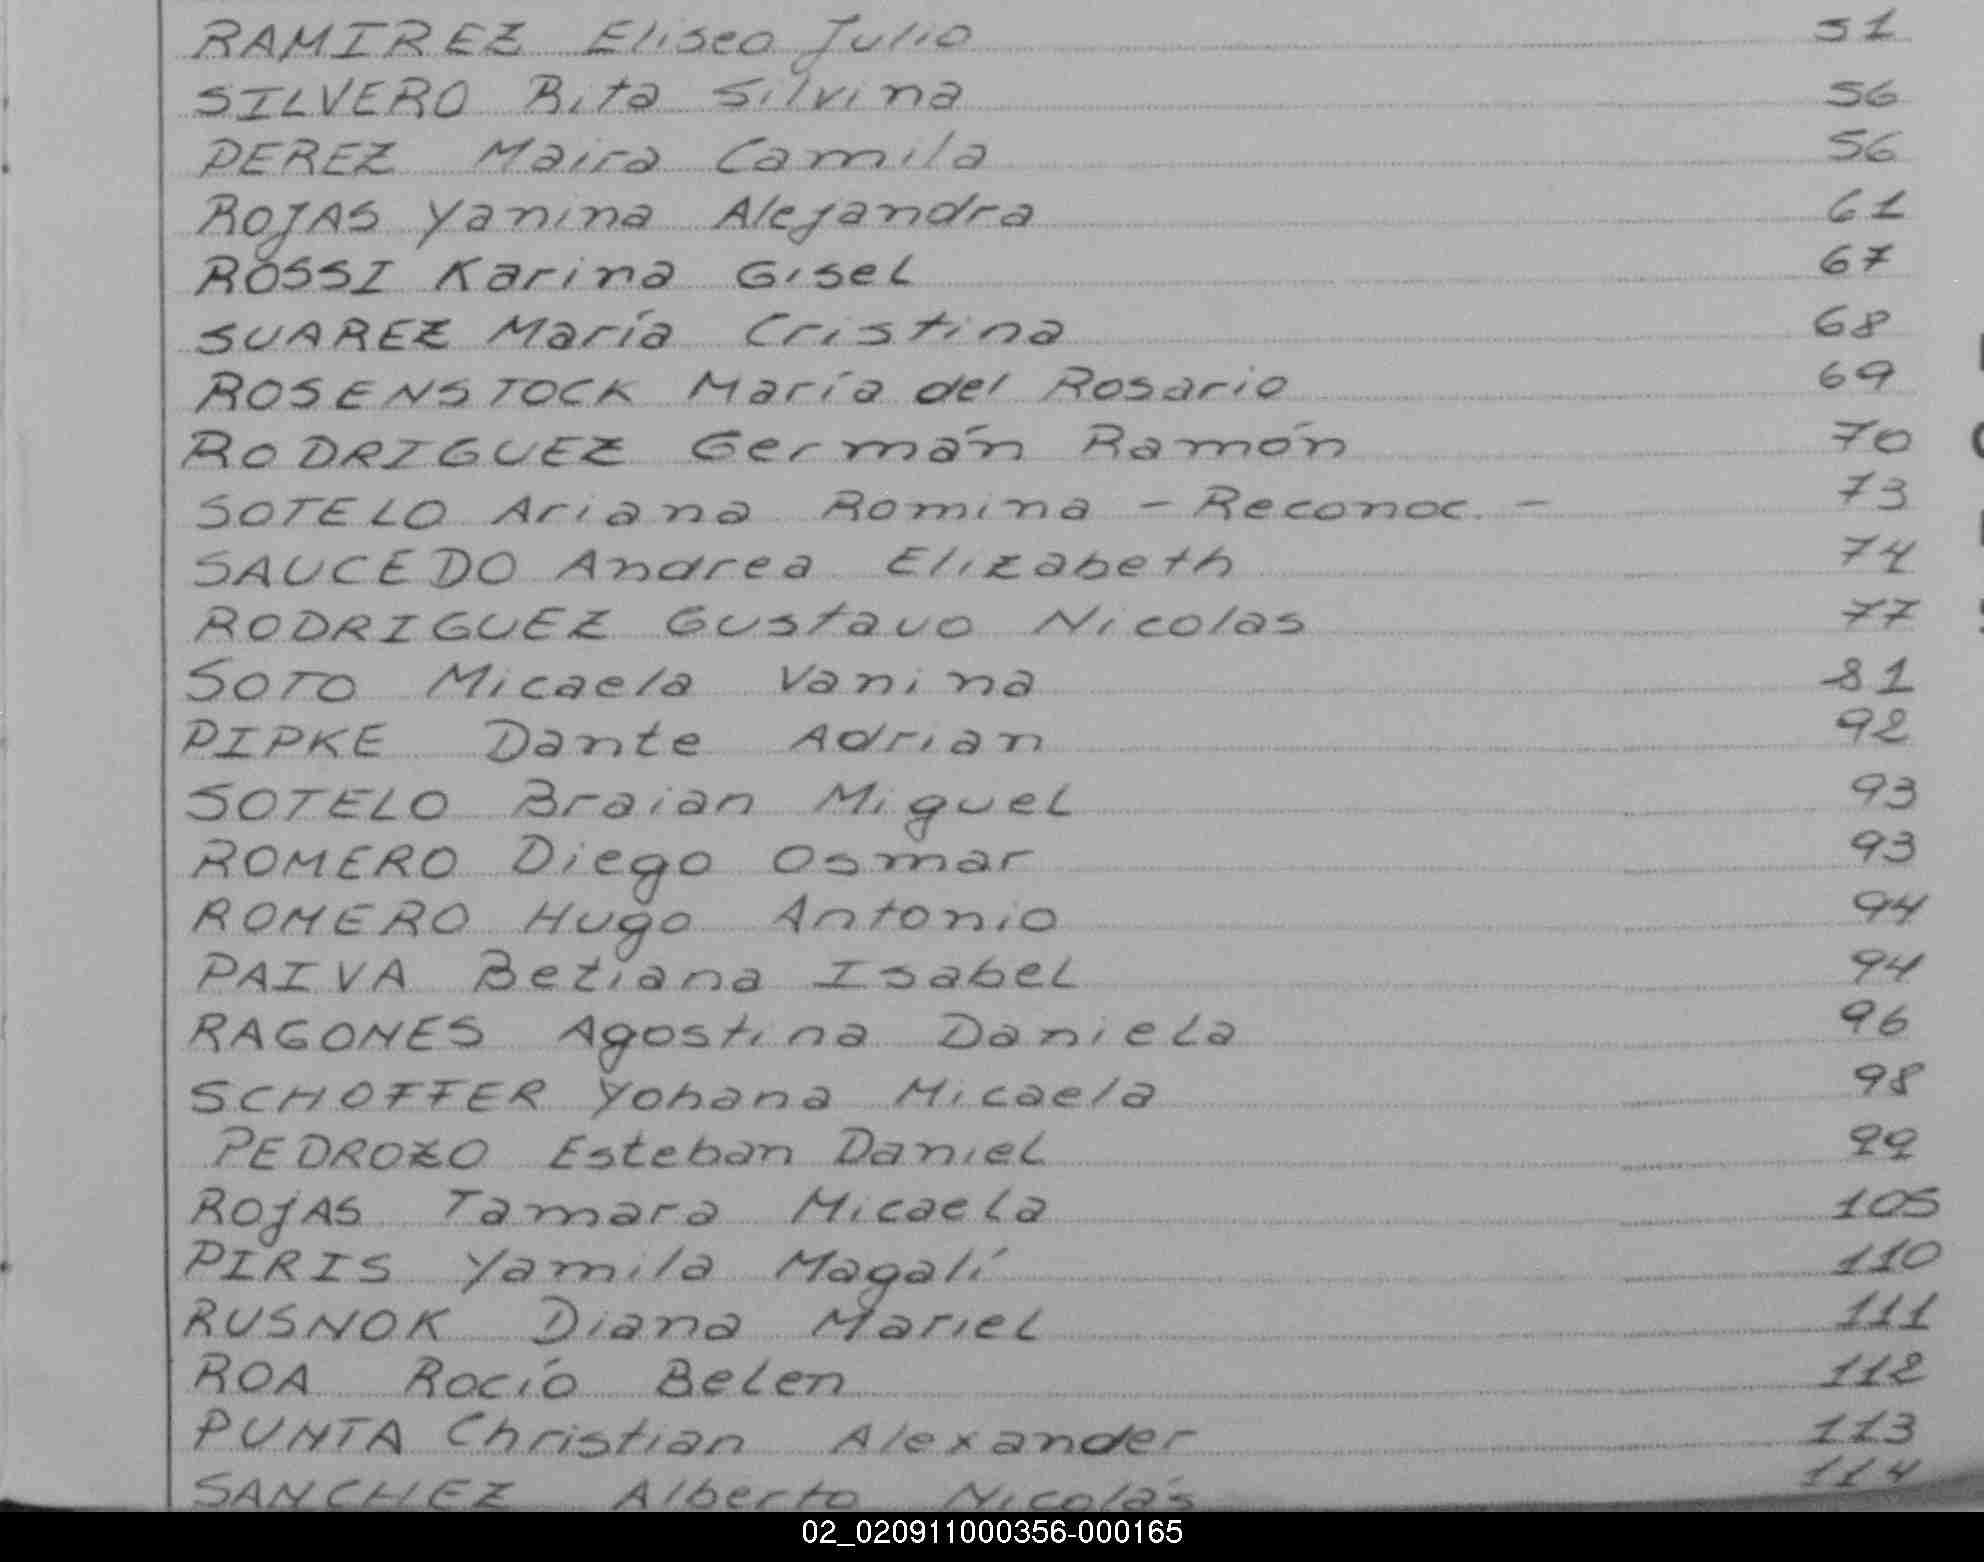 RAMIREZ Eliseo Julio 51
SILVERO Rita Silvina 56
PEREZ Maira Camila 56
ROJAS Yanina Alejandra 61
ROSSI Karina Gisel 67
SUAREZ María Cristina 68
ROSENSTOCK María del Rosario 69
RODRIGUEZ Germán Ramón 70
SOTELO Ariana Romina - Reconoc. - 73
SAUCEDO Andrea Elizabeth 74
RODRIGUEZ Gustavo Nicolas 77
SOTO Micaela Vanina 81
PIPKE Dante Adrian 92
SOTELO Braian Miguel 93
ROMERO Diego Osmar 93
ROMERO Hugo Antonio 94
PAIVA Betiana Isabel 94
RAGONES Agostina Daniela 96
SCHOFFER Yohana Micaela 98
PEDROZO Esteban Daniel 99
ROJAS Tamara Micaela 105
PIRIS Yamila Magalí 110
RUSNOK Diana Mariel 111
ROA Rocío Belen 112
PUNTA Christian Alexander 113
SANCHEZ Alberto Nicolás 114
02_020911000356-000165